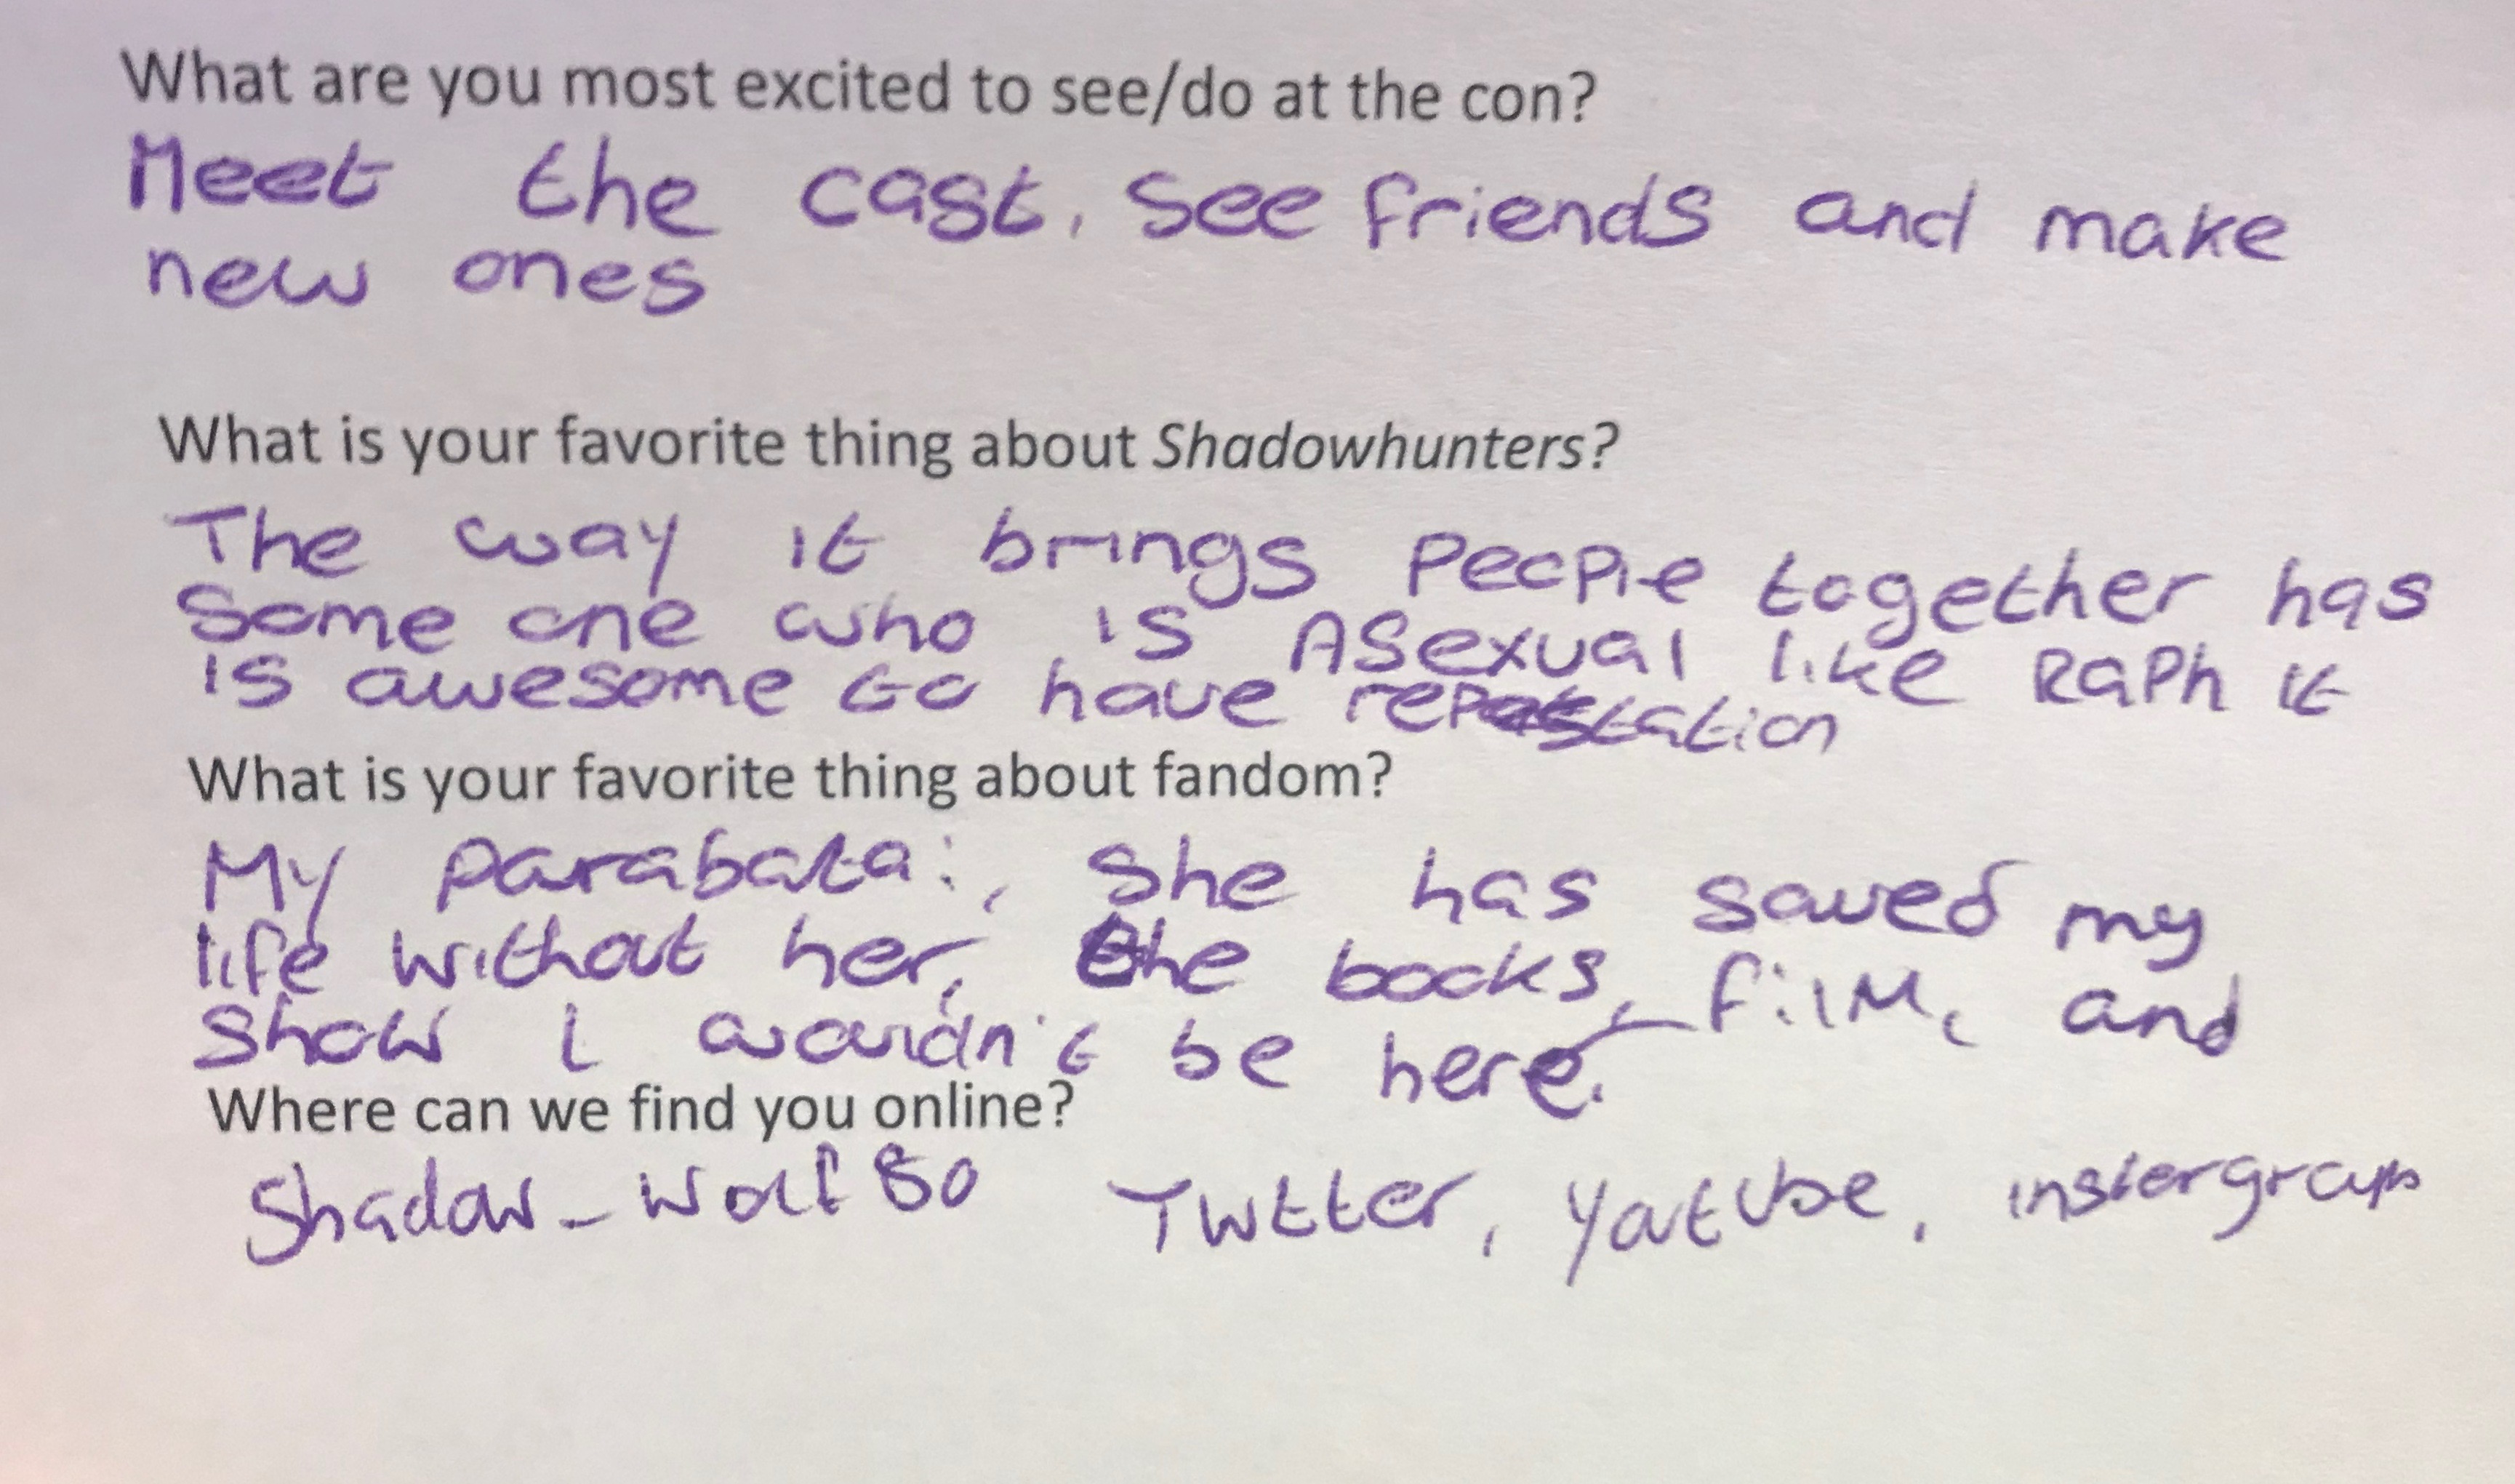 What are you most excited to see/do at the con?
Meet the cast, see friends and make
new ones
What is your favorite thing about Shadowhunters?
The way it brings People together has
Some one who is Asexual like Raph it
is awesome to have
What is your favorite thing about fandom?
My parabatai, She has saved my
life without her, the books, film, and
show I wouldn't be here.
Where can we find you online?
Shadow_Wolf Twtter, Youtube, instergram